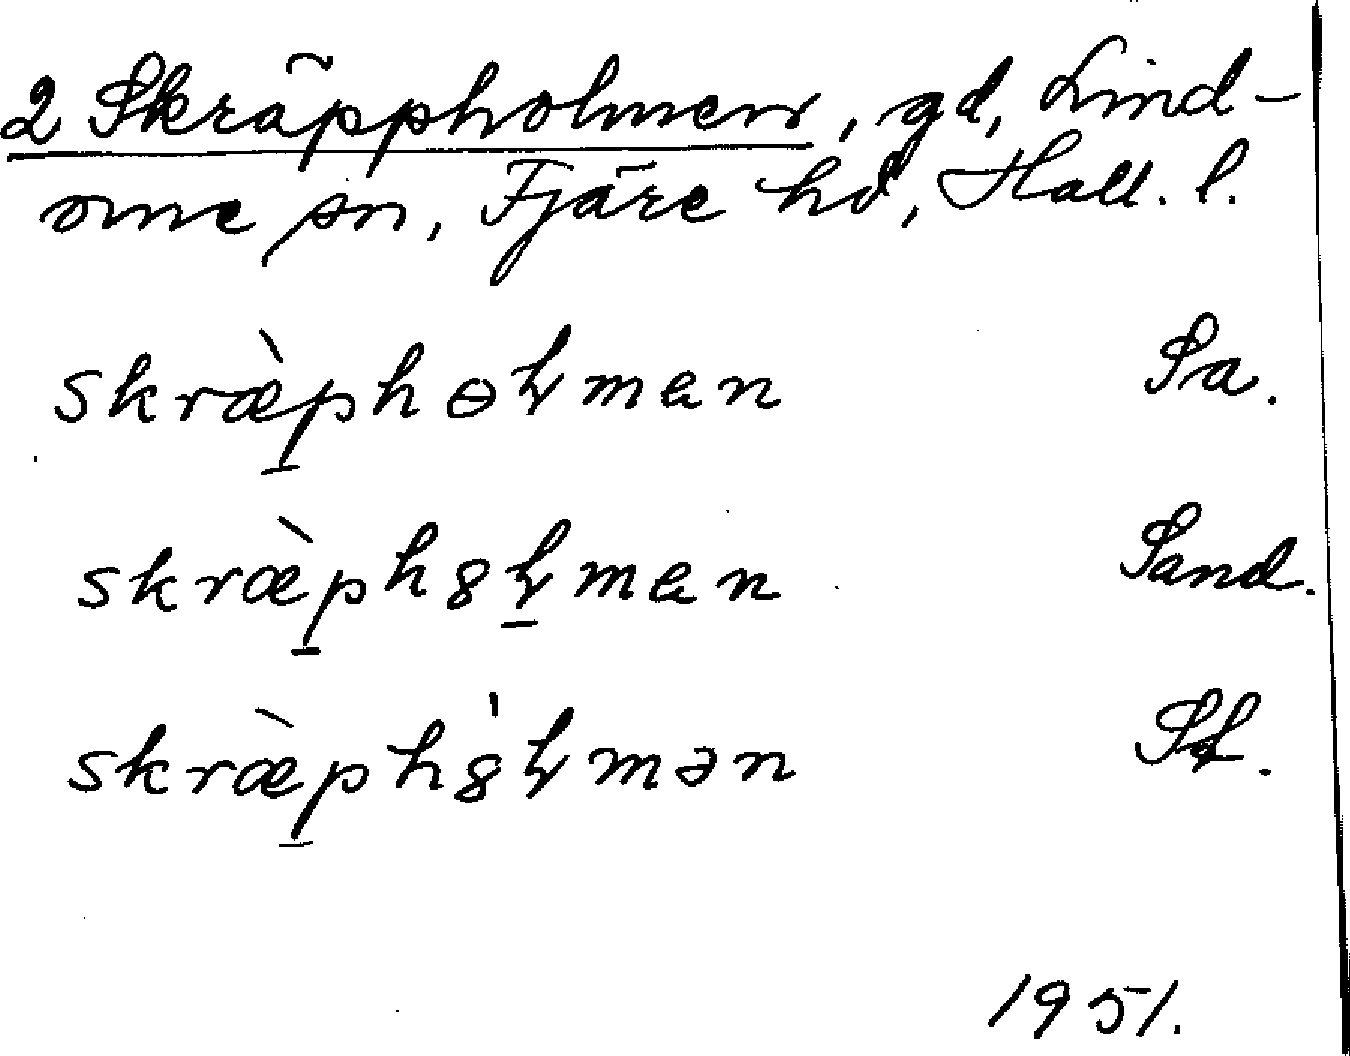 2 Skräppholmen, gd, Lind-
ome sn, Fjäre hd, Hall. l.
skræ̀p̱hɵꞎmen Sa.
skræ̀p̱h8ꞎ̱men Sand.
skræ̀p̱h8̍ꞎmən
1951.